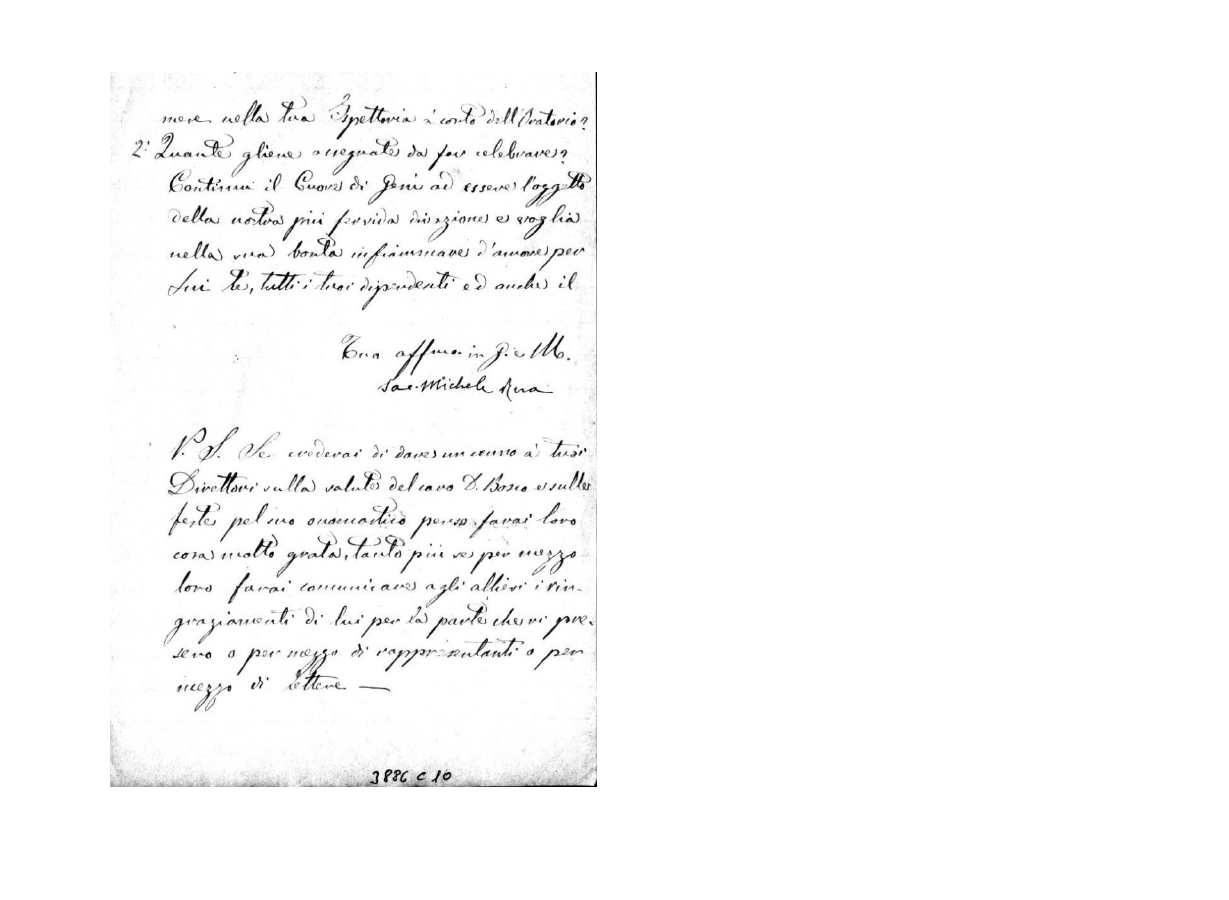 mese nella tua Ispettoria a conto dell'Oratorio?
2° Quante gliene assegnate da far celebrare?
Continui il Cuore di Gesù ad essere l'oggetto
della nostra più fervida divozione e voglia
nella sua bontà infiammare d'amore per
Lui te, tutti i tuoi dipendenti ed anche il
Tuo affmo in G. e M.
Sac. Michele Rua
P. S. Se crederai di dare un cenno a' tuoi
Direttori sulla salute del caro D. Bosco e sulle
feste pel suo onomastico penso farai loro
cosa molto grata, tanto più se per mezzo
loro farai comunicare agli allievi i rin-
graziamenti di lui per la parte che vi pre-
sero o per mezzo di rappresentanti o per
mezzo di lettere —
3886 C 10